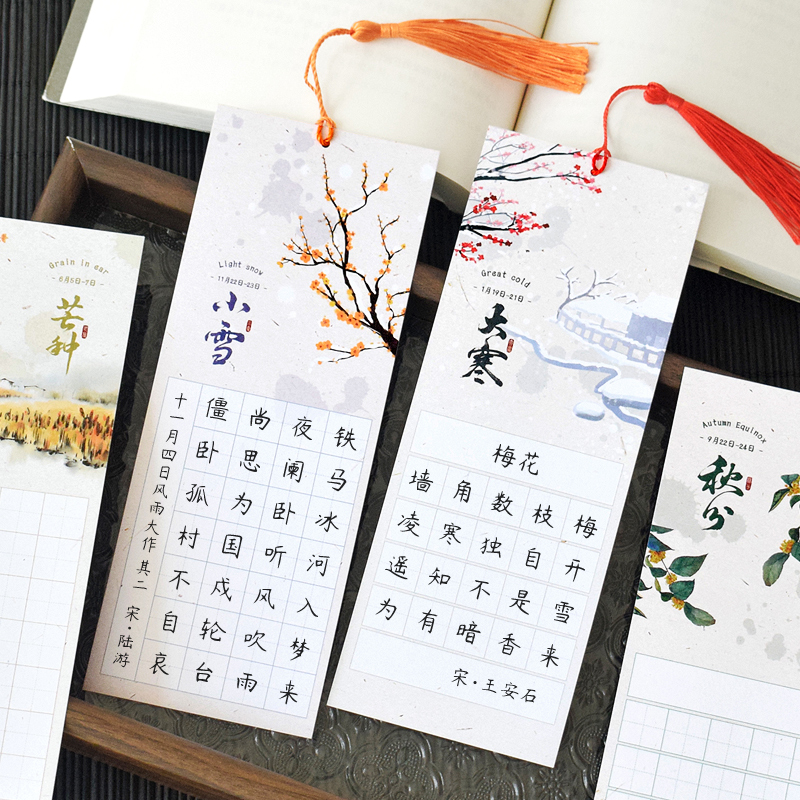 Grain in ear
- 6月5日-7日 -
芒种
Light snow
- 11月22日-23日 -
小雪
十一月四日风雨大作 其二 宋·陆游
僵卧孤村不自哀
尚思为国戍轮台
夜阑卧听风吹雨
铁马冰河入梦来
Great cold
- 1月19日-21日 -
大寒
梅花
墙角数枝梅
凌寒独自开
遥知不是雪
为有暗香来
宋·王安石
Autumn Equinox
- 9月22日-24日 -
秋分